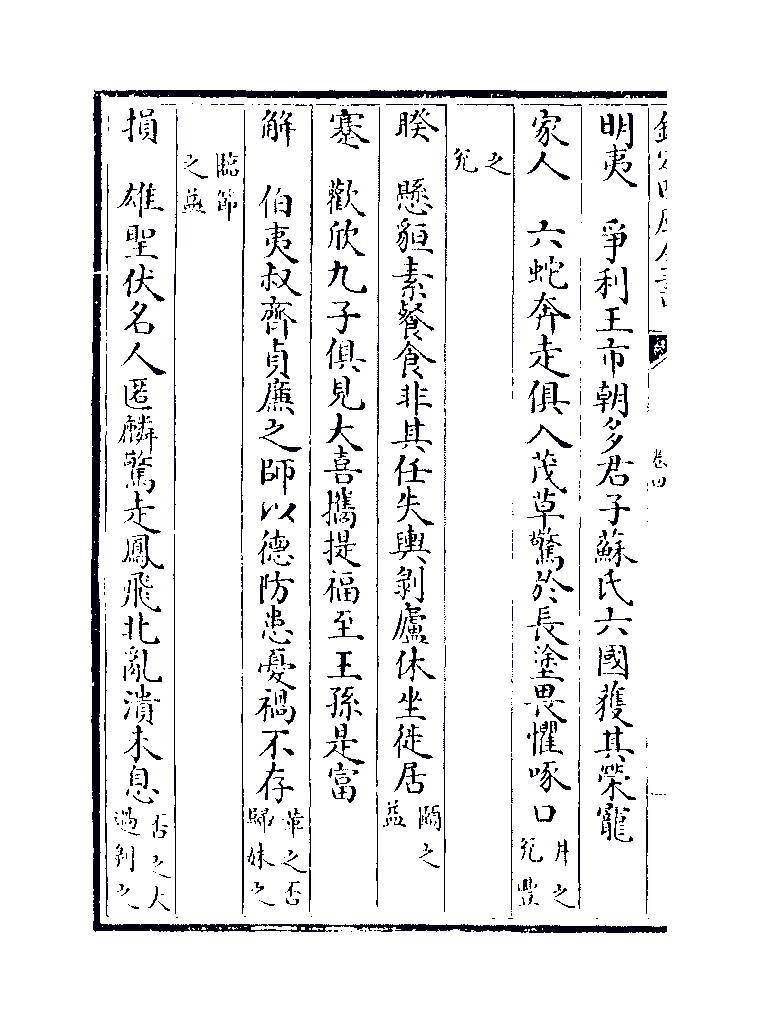 欽定四庫全書 卷四
明夷 爭利王市朝多君子蘇氏六國獲其榮寵
家人 六蛇奔走俱入茂草驚於長塗畏懼啄口 升之兌豐
之兌
睽 懸貆素餐食非其任失輿剝廬休坐徙居 頤之益
蹇 歡欣九子俱見大喜攜提福至王孫是富
解 伯夷叔齊貞廉之師以德防患憂禍不存 革之否歸妹之
臨節之益
損 雄聖伏名人匿麟驚走鳳飛北亂潰未息 否之大過剝之